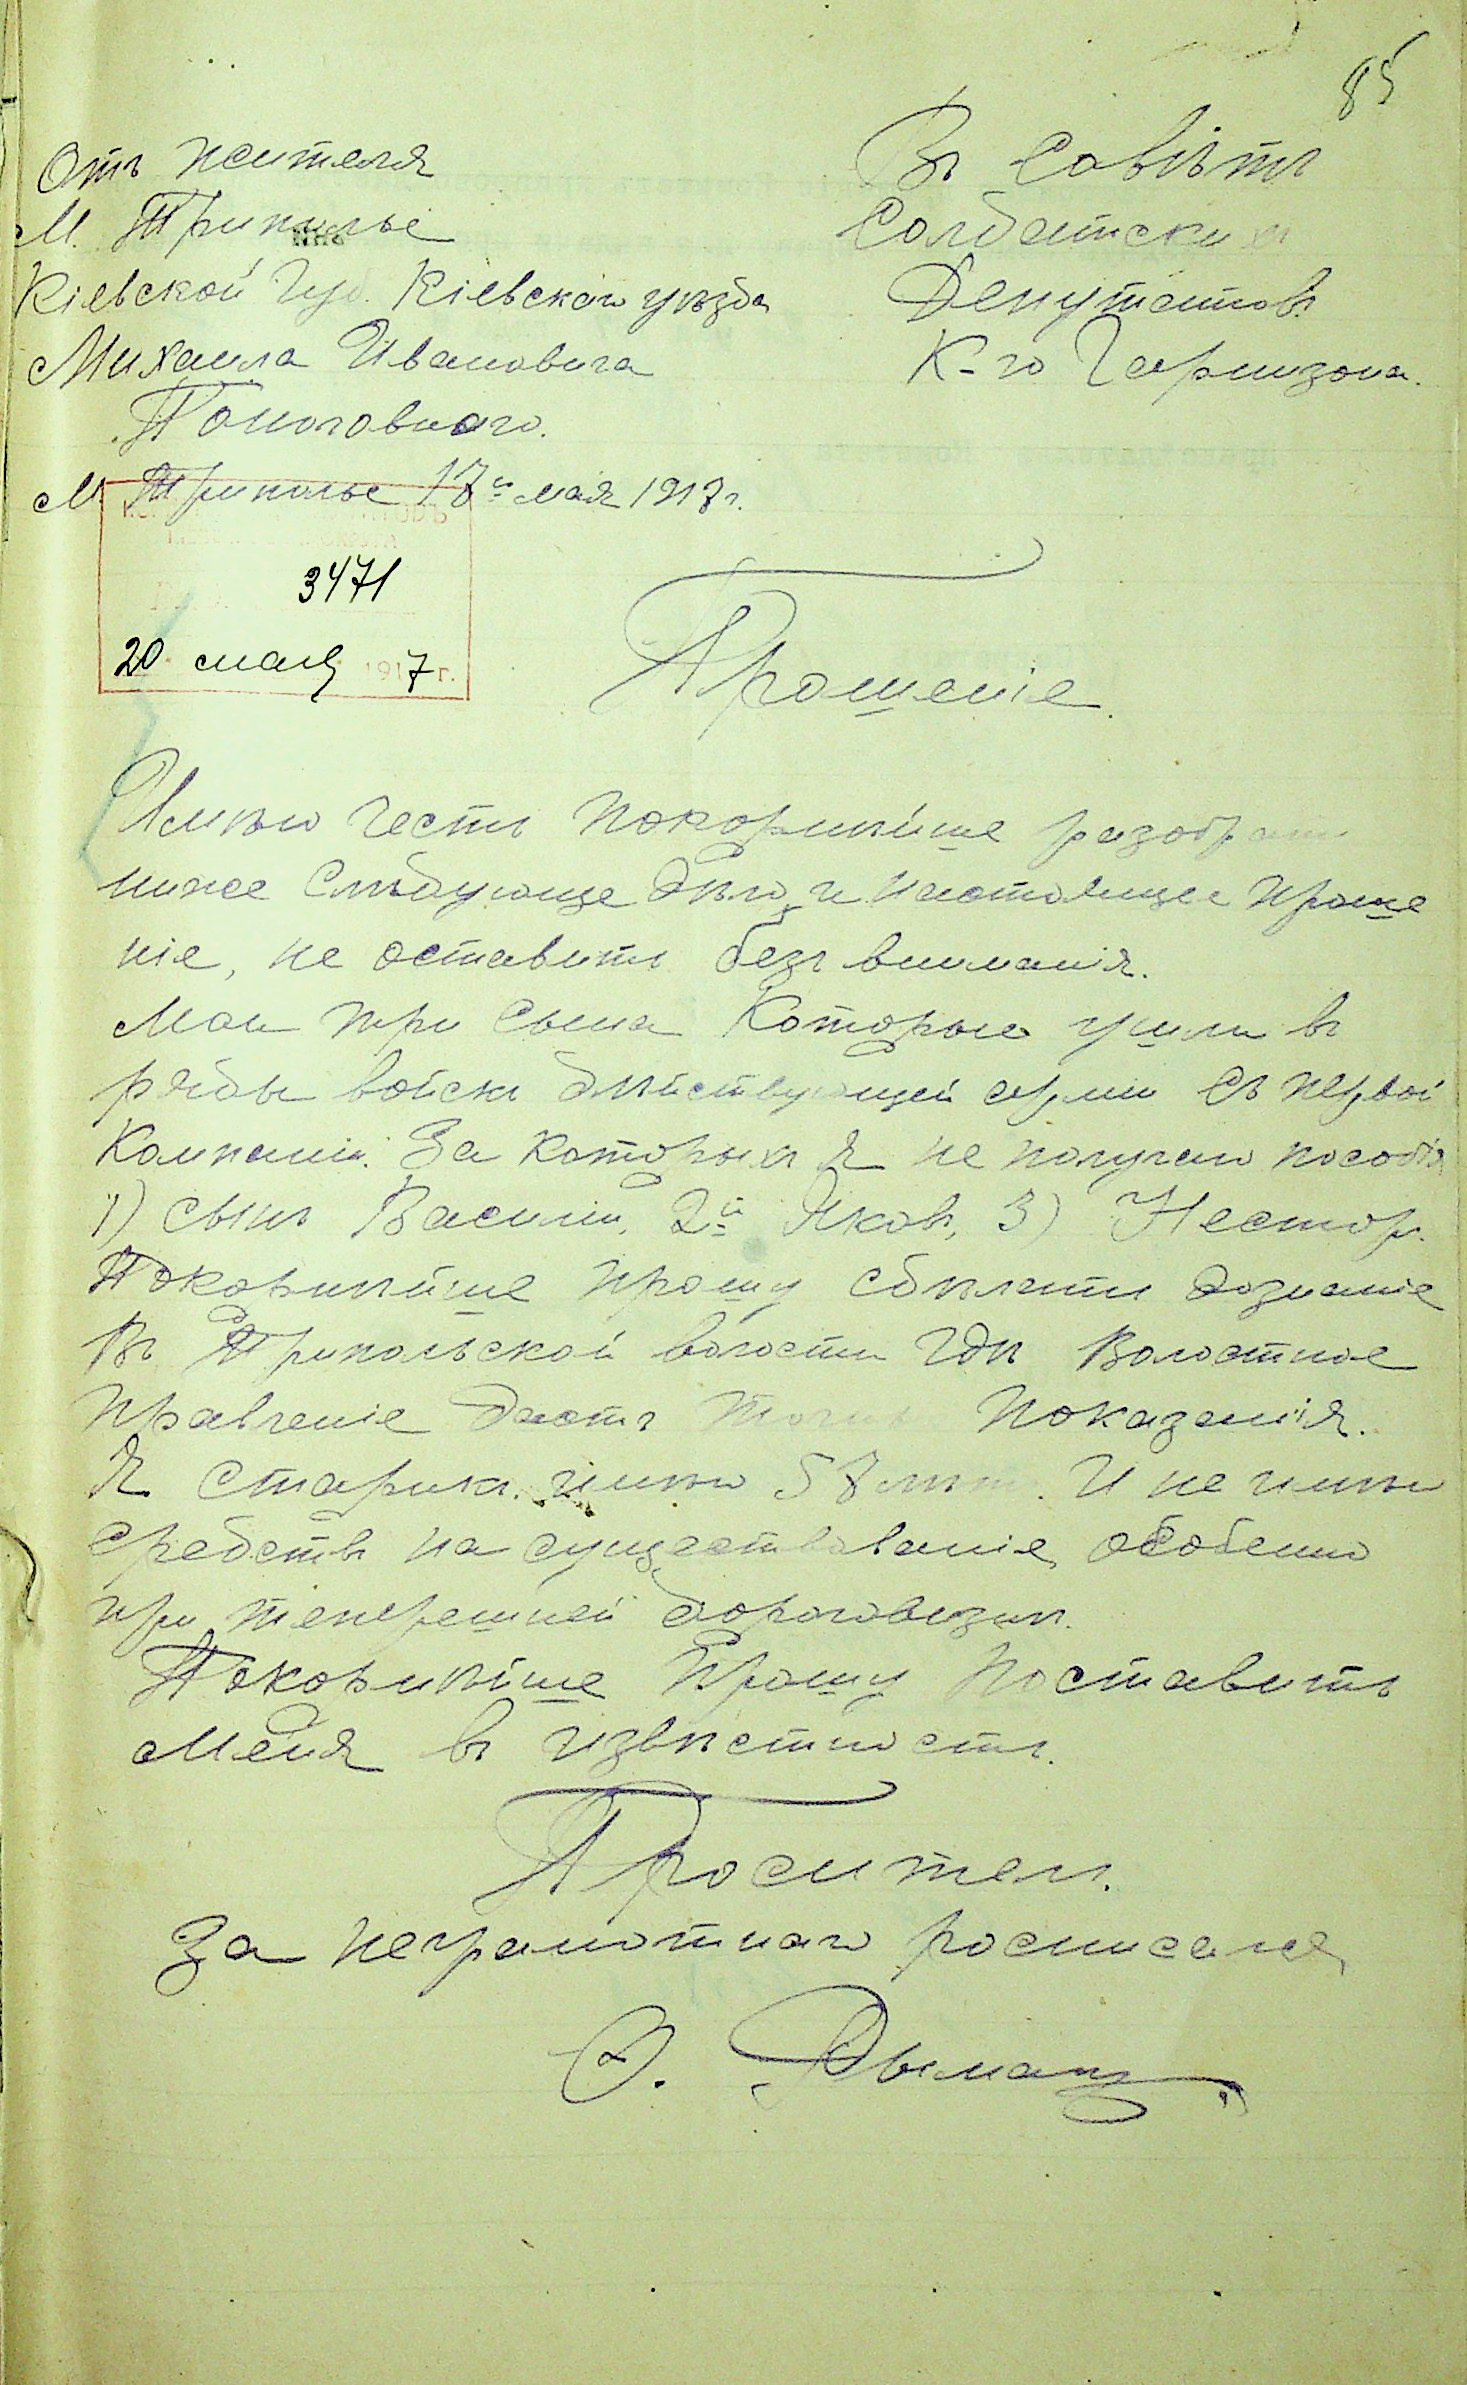 85
Въ Совѣтъ
Солдатскихъ
Депутатовъ
К-го Гарнизона.
Отъ жителя
М. Триполье
Кіевской Губ. Кіевскаго уѣзда
Михаила Ивановича
М. Триполье 17го мая 1917 г.
3471
20 мая 1917 г.
Прошеніе.
Имѣю честь покорнѣйше разобрать
ниже Слѣдующе дѣло, и настоящее проше
ніе, не оставить безъ вниманія.
Мои три сына Которые ушли въ
ряды войскъ дѣйствующей арміи съ первой
Компаніи. За которыхъ я не получаю пособія
1) сынъ Василій, 2й Яковъ, 3) Несторъ.
Покорнѣйше прошу сдѣлать дознаніе
Въ Трипольской волости гдѣ Волостное
правленіе дастъ точныя показанія.
Я старикъ. имѣю 57 лѣтъ. И не имѣю
средствъ на существованіе, особенно
при теперешней дороговизнѣ.
Покорнѣйше Прошу Поставить
меня въ извѣстность.
Проситель.
За неграмотнаго росписался